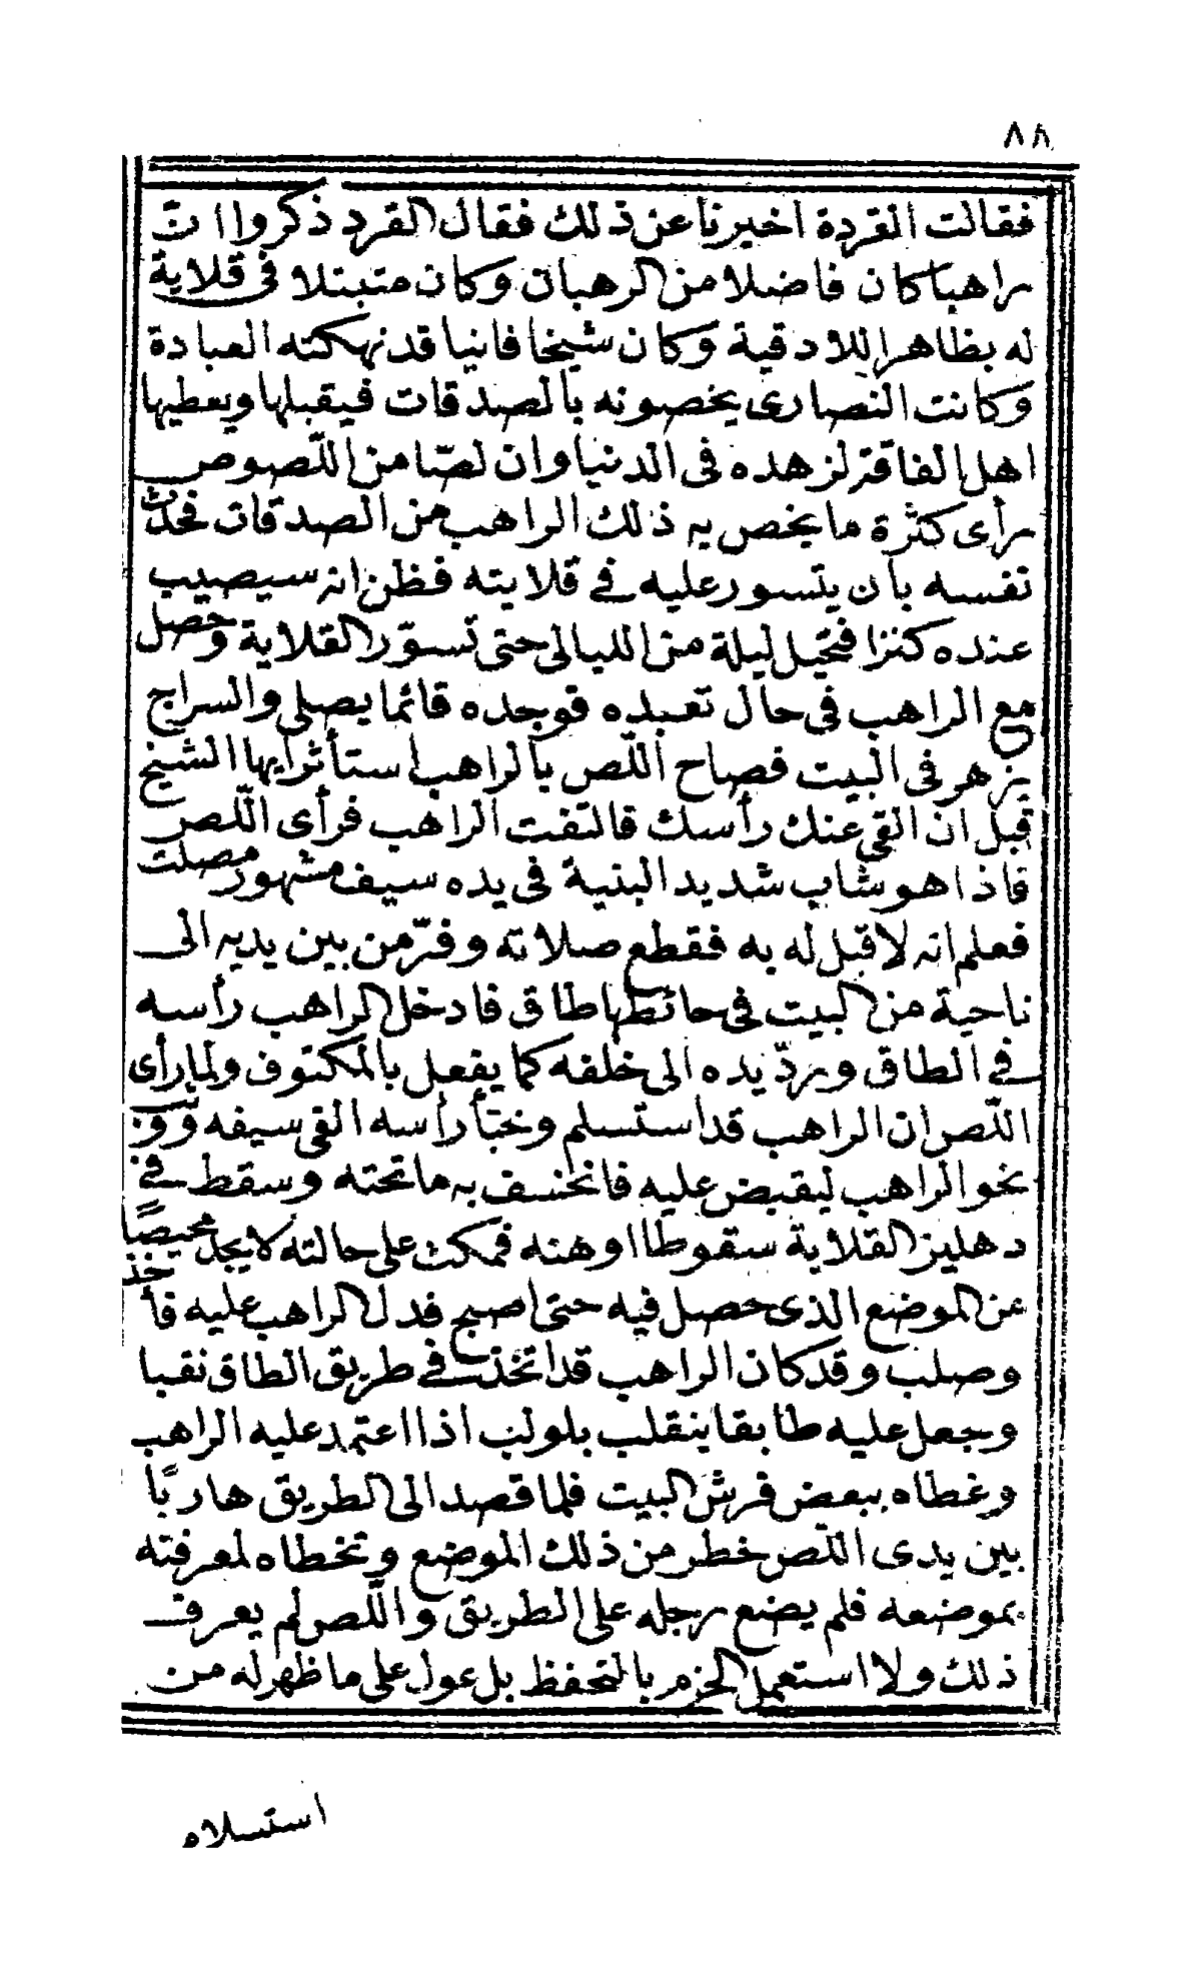 ٨٨
فقالت القردة اخبرنا عن ذلك فقال القرد ذكروا انّ
راهبا كان فاضلا من الرهبان وكان متبتلا فى قلاية
له بظاهر اللادقية وكان شيخا فانيا قد نهكته العبادة
وكانت النصارى يخصونه بالصدقات فيقبلها ويعطيها
اهل الفاقة لزهده فى الدنيا وان لصّا من اللّصوص
رأى كثرة ما يخص به ذلك الراهب من الصدقات فحدّث
نفسه بان يتسور عليه فى قلايته فظن انه سيصيب
عنده كنزا فتحيل ليلة من الليالى حتى تسوّر القلاية وحصل
مع الراهب فى حال تعبده فوجده قائما يصلى والسراج
يزهر فى البيت فصاح اللّص بالراهب استأثر ايها الشيخ
قبل ان القى عنك رأسك فالتفت الراهب فرأى اللّص
فاذا هو شاب شديد البنية فى يده سيف مشهور مصلت
فعلم انه لا قبل له به فقطع صلاته وفرّ من بين يديه الى
ناحية من البيت فى حائطها طاق فادخل الراهب رأسه
فى الطاق وردّ يده الى خلفه كما يفعل بالمكتوف ولما رأى
اللّص ان الراهب قد استسلم وخبأ رأسه القى سيفه
نحو الراهب ليقبض عليه فانخسف به ما تحته وسقط فى
دهليز القلاية سقوطا اوهنه فمكث على حالته لا يجد محيصًا
عن الموضع الذى حصل فيه حتى اصبح فدل الراهب عليه فأخذ
وصلب وقد كان الراهب قد اتخذ فى طريق الطاق نقبا
وجعل عليه طابقا ينقلب بلولب اذا اعتمد عليه الراهب
وغطاه ببعض فرش البيت فلما قصد الى الطريق هاربًا
بين يدى اللّص خطر من ذلك الموضع وتخطاه لمعرفته
بموضعه فلم يضع رجله على الطريق واللّص لم يعرف
ذلك ولا استعمل الحزم بالتحفظ بل عول على ما ظهر له من
استسلام